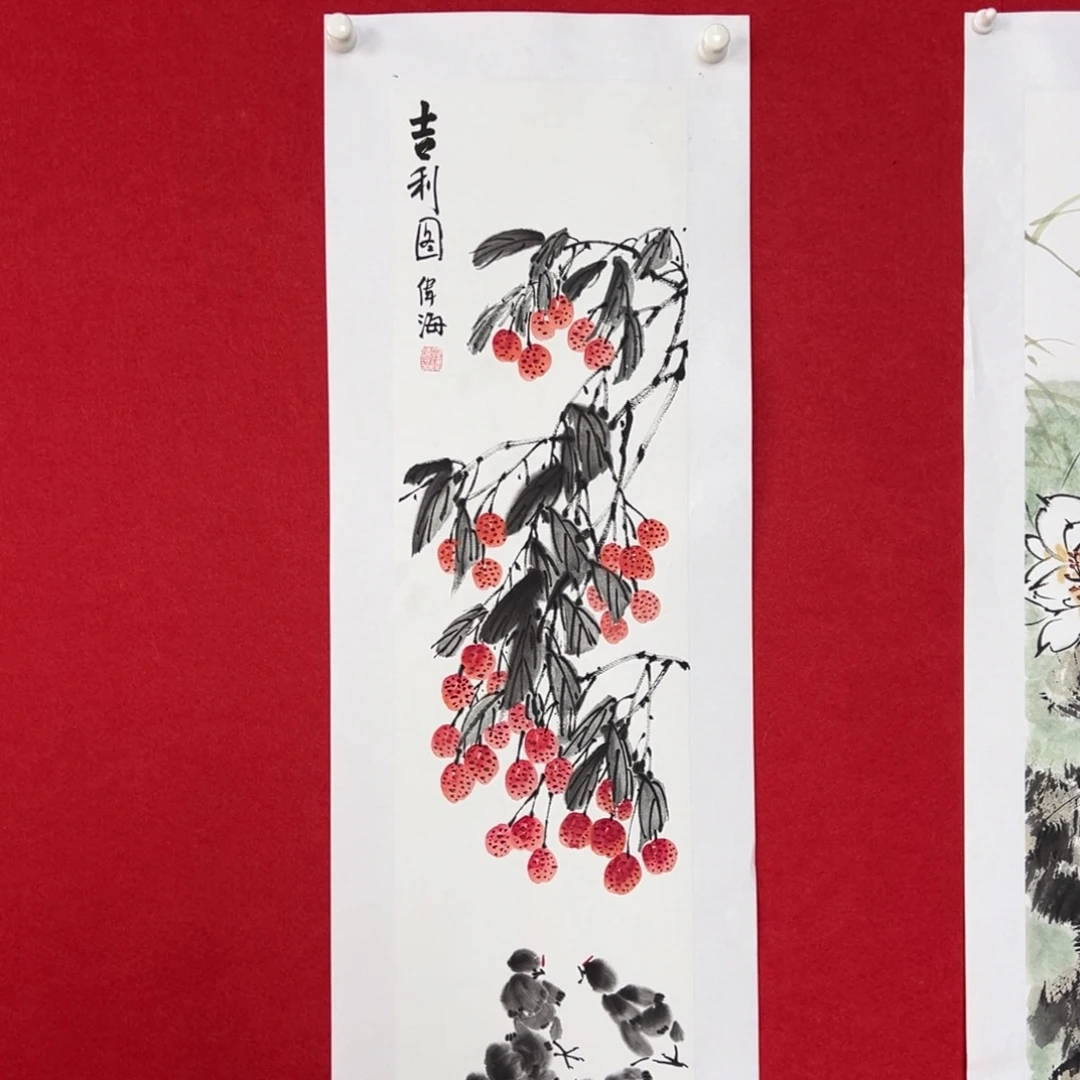 吉利图
偉海